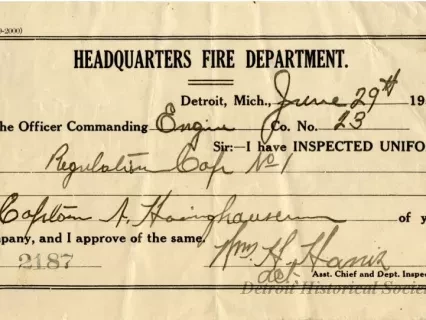 9-2000)
HEADQUARTERS FIRE DEPARTMENT.
Detroit, Mich., June 29th 19
he Officer Commanding Engine Co. No. 23
Sir:—I have INSPECTED UNIFO
Regulation Cap No 1
Captain A. 
of y
pany, and I approve of the same.
Wm. H. Harris
2187
Asst. Chief and Dept. Inspec
Detroit Historical Societ